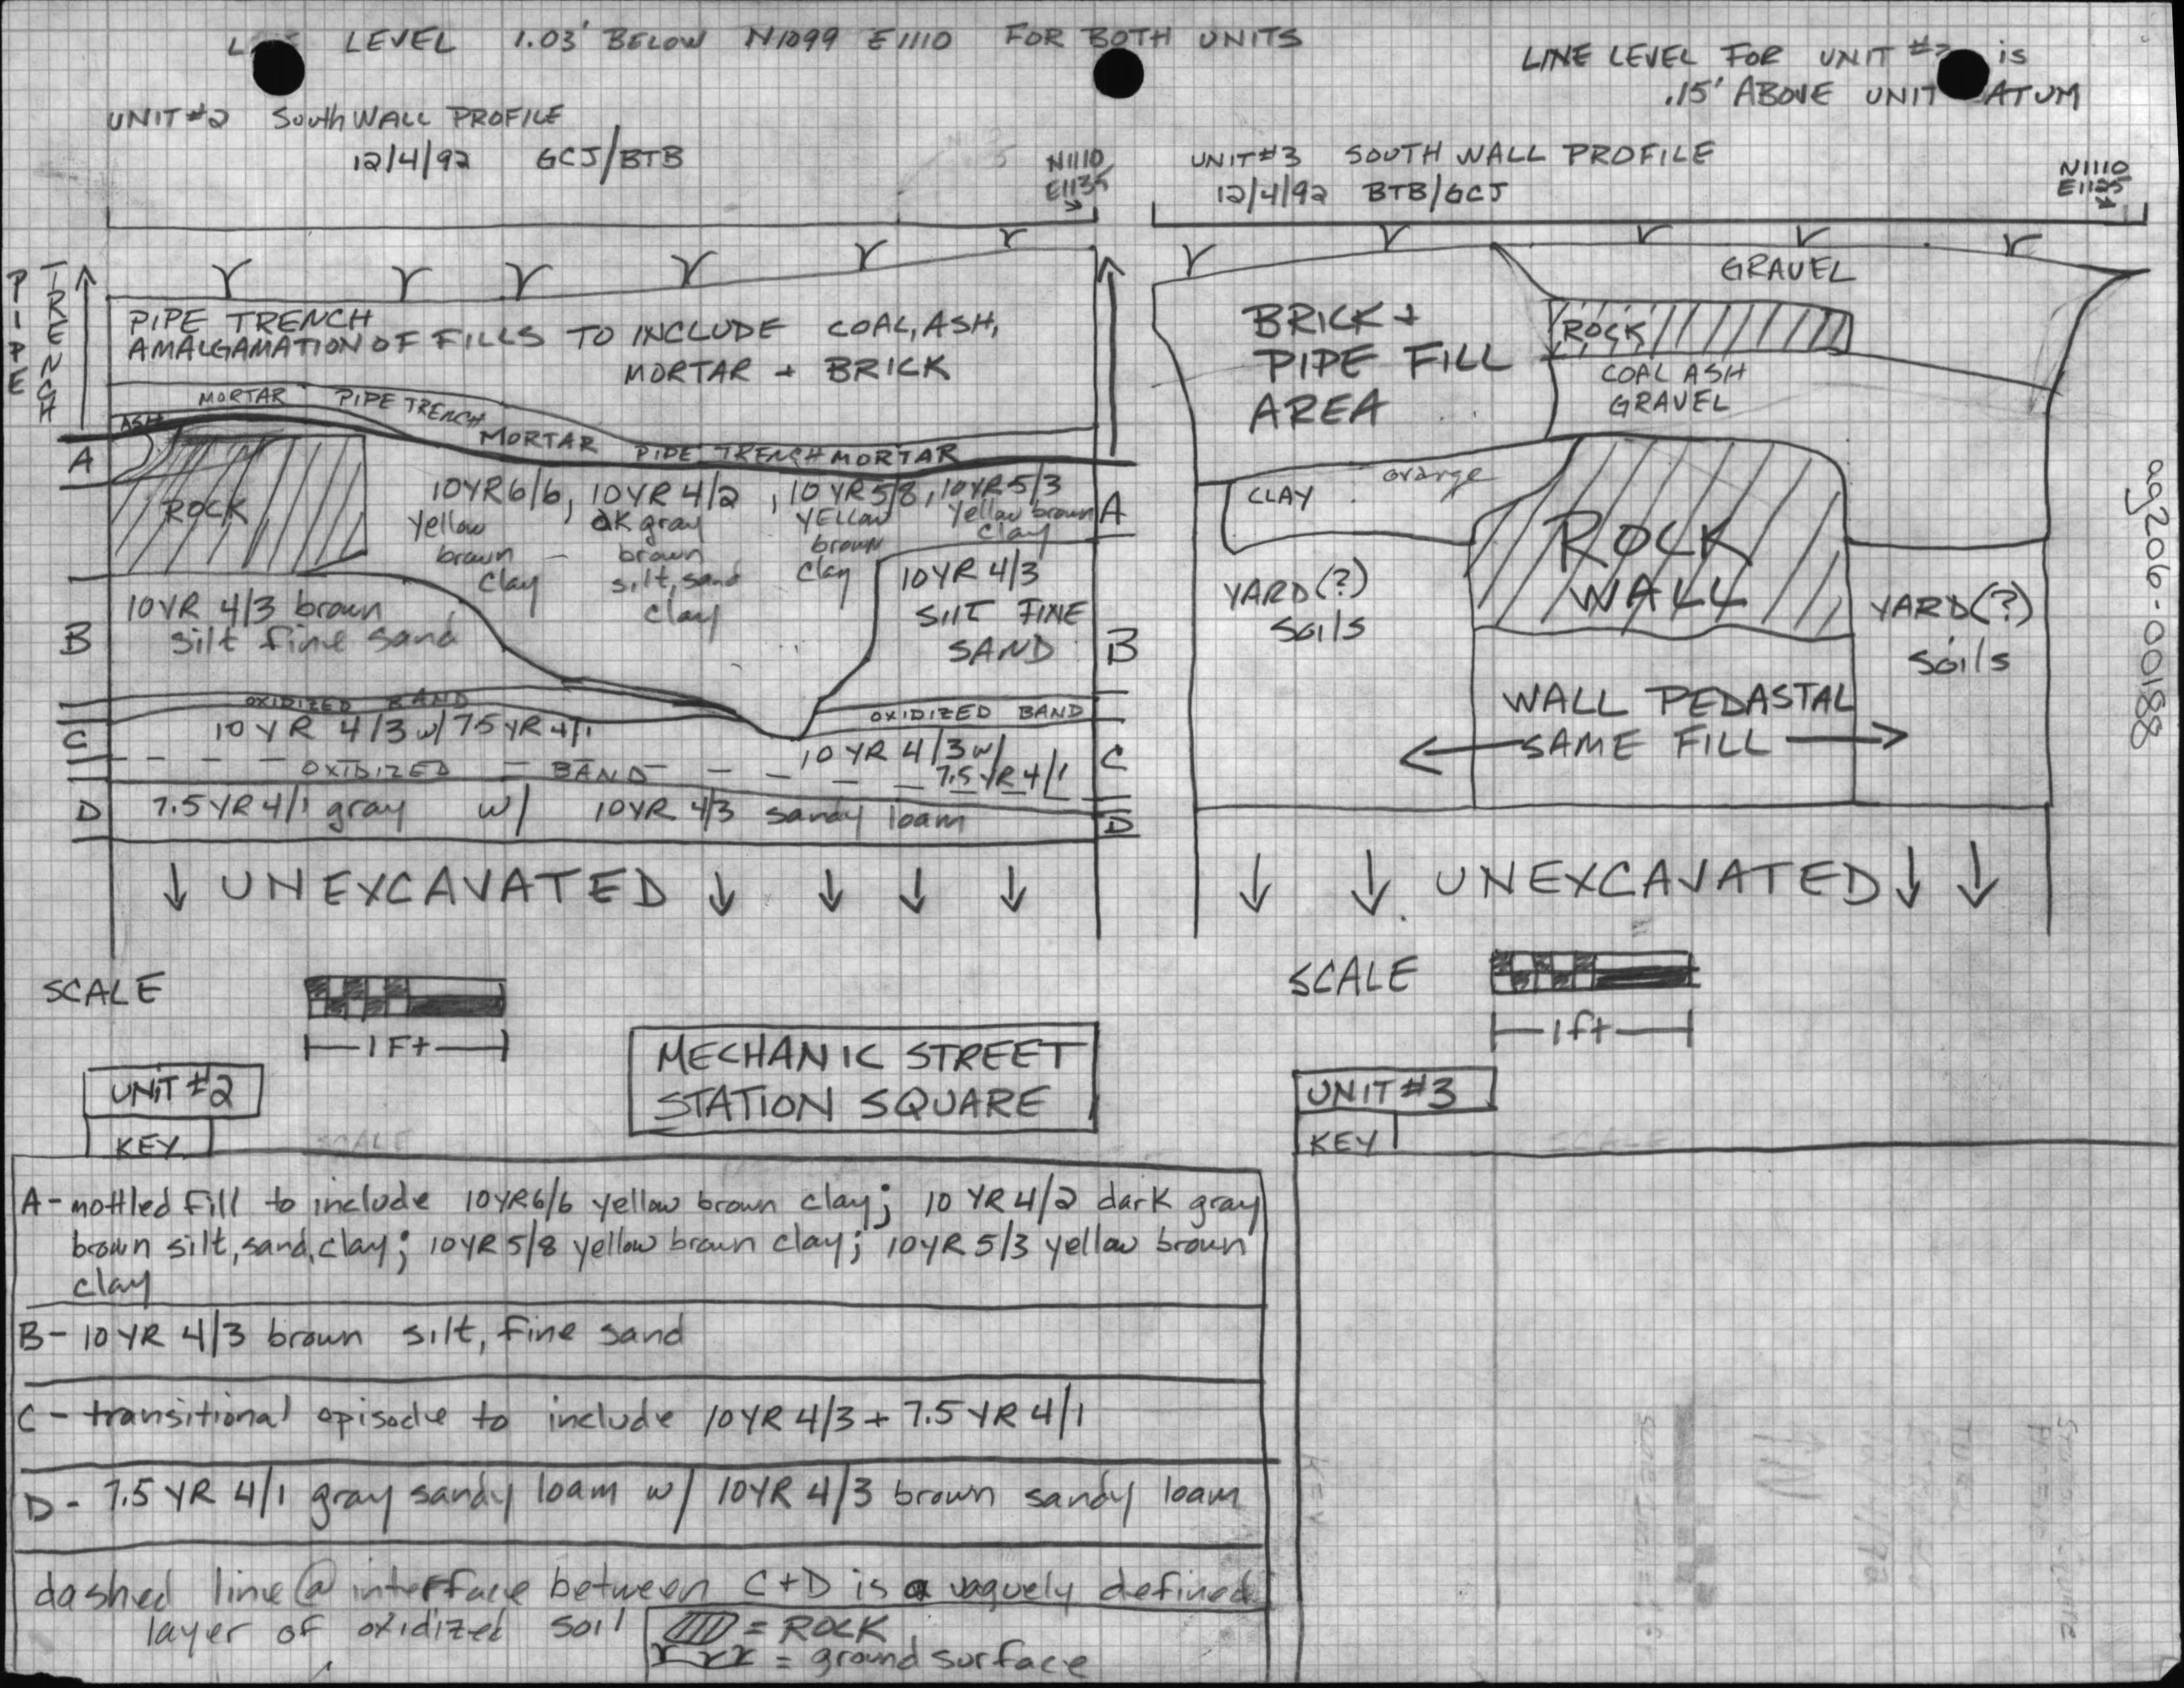 LEVEL 1.03' BELOW N1099 E1110 FOR BOTH UNITS
LINE LEVEL FOR UNIT is
.15' ABOVE UNIT ATUM
UNIT #2 South WALL PROFILE
12/4/92 GCJ/BTB
N1110
E1135
UNIT #3 SOUTH WALL PROFILE
12/4/92 BTB/GCJ
N1110
E1125
PIPE
TRENCH
PIPE TRENCH
AMALGAMATION OF FILLS TO INCLUDE COAL, ASH,
MORTAR + BRICK
MORTAR PIPE TRENCH
ASH
MORTAR PIPE TRENCH MORTAR
A
ROCK
10YR6/6, 10YR 4/2, 10YR5/8, 10YR5/3
yellow brown clay
dk gray brown silt, sand clay
yellow brown clay
yellow brown clay
A
10YR 4/3 brown
silt fine sand
B
10YR 4/3
SILT FINE
SAND
B
OXIDIZED BAND
OXIDIZED BAND
C
10YR 4/3 w/ 7.5YR 4/1
10YR 4/3 w/
7.5YR 4/1
C
OXIDIZED BAND
D
7.5YR 4/1 gray w/ 10YR 4/3 sandy loam
D
UNEXCAVATED
GRAVEL
BRICK +
PIPE FILL
AREA
ROCK
COAL ASH
GRAVEL
CLAY orange
ROCK
WALL
YARD(?)
soils
YARD(?)
soils
WALL PEDASTAL
SAME FILL
UNEXCAVATED
ag206-00188
SCALE
1 Ft
SCALE
1 ft
MECHANIC STREET
STATION SQUARE
UNIT #2
KEY
SCALE
UNIT #3
KEY
SCALE
A- mottled fill to include 10YR6/6 yellow brown clay; 10 YR 4/2 dark gray
brown silt, sand, clay; 10YR 5/8 yellow brown clay; 10YR 5/3 yellow brown
clay
B- 10YR 4/3 brown silt, fine sand
C- transitional episode to include 10YR 4/3 + 7.5YR 4/1
D- 7.5YR 4/1 gray sandy loam w/ 10YR 4/3 brown sandy loam
dashed line @ interface between C+D is a vaguely defined
layer of oxidized soil
= ROCK
= ground surface